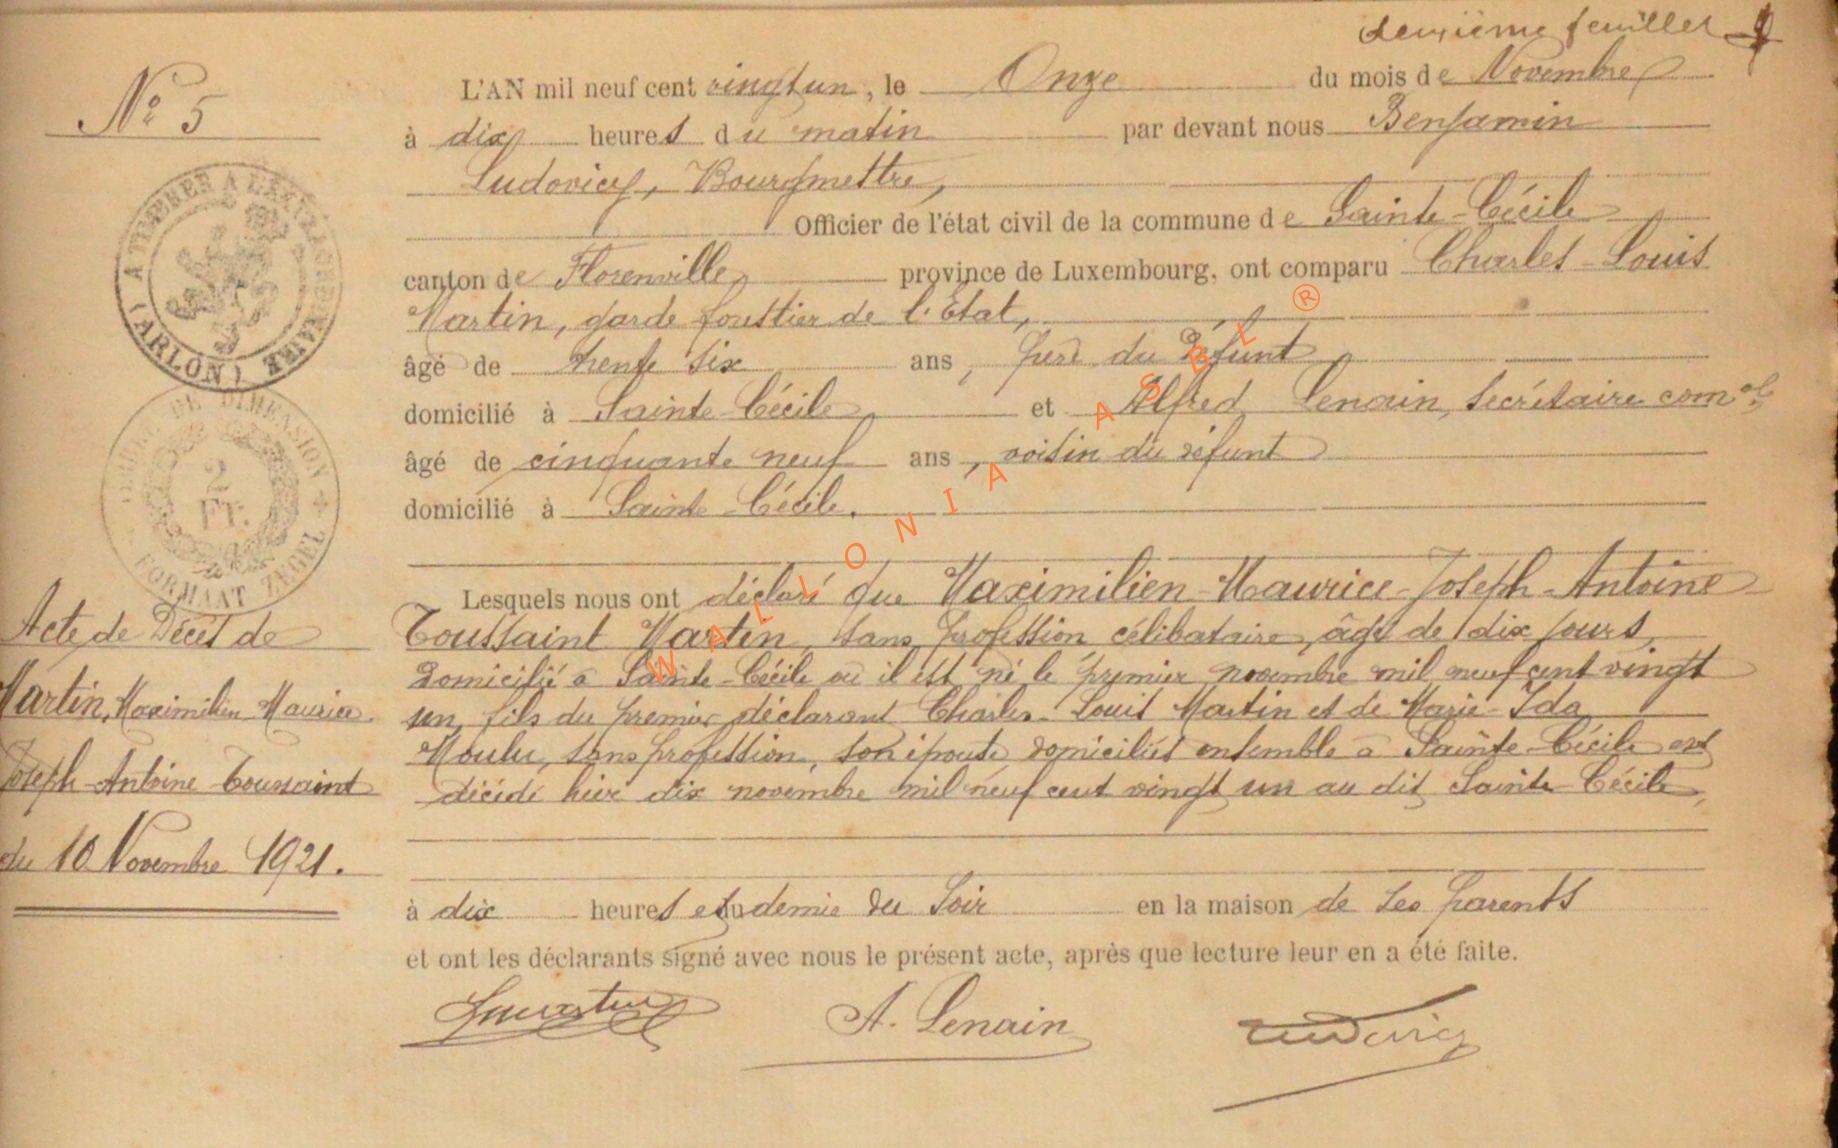 deuxième feuillet
N° 5
L'AN mil neuf cent vingt un, le Onze du mois de Novembre
à dix heures du matin par devant nous Benjamin
Ludovicy, Bourgmestre,
Officier de l'état civil de la commune de Sainte-Cécile
canton de Florenville province de Luxembourg, ont comparu Charles-Louis
Martin, garde forestier de l'État,
âgé de trente six ans, père du défunt
domicilié à Sainte-Cécile et Alfred Lenain, Secrétaire comal
âgé de cinquante neuf ans, voisin du défunt
domicilié à Sainte-Cécile.
Lesquels nous ont déclaré que Maximilien-Maurice-Joseph-Antoine
Toussaint Martin, sans profession célibataire, âgé de dix jours,
domicilié à Sainte-Cécile où il est né le premier novembre mil neuf cent vingt
un, fils du premier déclarant Charles-Louis Martin et de Marie-Ida
Moulu, sans profession, son épouse, domiciliés ensemble à Sainte-Cécile est
décédé hier dix novembre mil neuf cent vingt un au dit Sainte-Cécile,
à dix heures et demie du Soir en la maison de ses parents
et ont les déclarants signé avec nous le présent acte, après que lecture leur en a été faite.
A. Lenain
Ludovicy
Acte de Décès de
Martin, Maximilien Maurice
Joseph-Antoine Toussaint
du 10 Novembre 1921.
A TIMBRER A L'EXTRAORDINAIRE (ARLON)
TIMBRE DE DIMENSION
2
Fr.
FORMAAT ZEGEL
WALLONIA ASBL ®